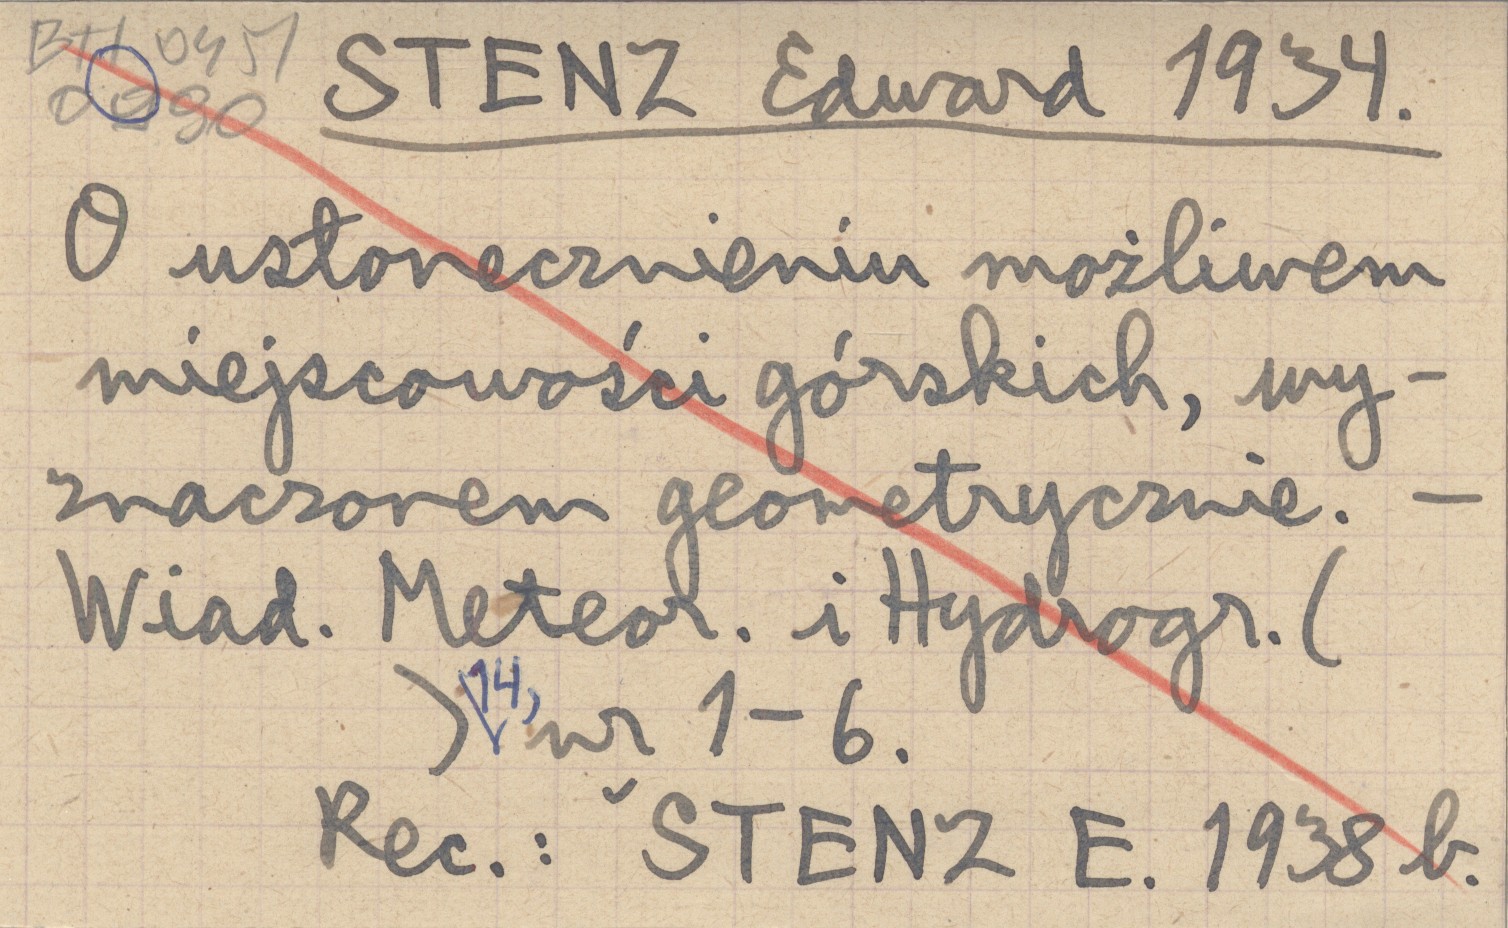 BTI 0451
STENZ Edward 1934.
O usłonecznieniu możliwem
miejscowości górskich, wy-
znaczonem geometrycznie. —
Wiad. Meteor. i Hydrogr. (
) 14, nr 1-6.
Rec.: STENZ E. 1938 b.